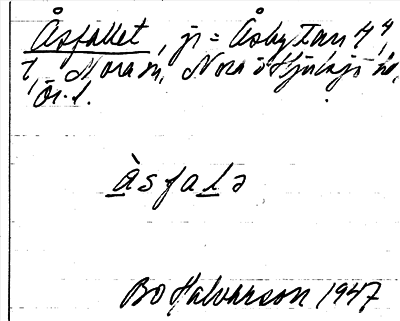 Åsfallet, jr = Åsbytorp 4⁴,
1, Nora sn, Nora o Hjulsjö hd,
Ör. l.
àsfalə
Bo Halvarson 1947